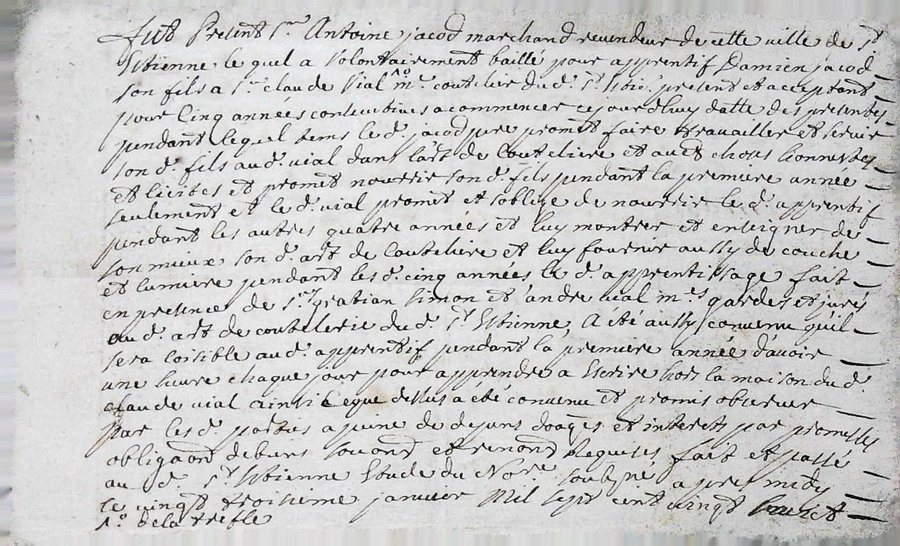 fut Present Sr Antoine jacod marchand revendeur de cette ville de st
Estienne, lequel a volontairement baillé pour apprentif Damien jacod
son fils a Sr claude vial me coutelier du d. St Estie. present et acceptant
pour Cinq années consecutives a commencer ce jourd'huy datte des presentes
pendant lequel tems le d. jacod pere promet faire travailler et servir
son d. fils au d. vial dans l'art de Couteliere et autres choses honnestes
et licites et promet nourrir son d. fils pendant la premiere année
seulement et le d. vial promet et s'oblige de nourrir le d. apprentif
pendant les autres quatre années et luy montrer et enseigner de
son mieux son d. art de Couteliere et luy fournir aussy de couche
et lumiere pendant les d. cinq années, le d. apprentissage fait
en presence de Sr gratian Simon et andré vial mes gardes et jurés
au d. art de coutelerie du d. St Estienne, A été aussy convenu qu'il
sera loisible au d. apprentif pendant la premiere année d'avoir
une heure chaque jour pour apprendre a Escrire hors la maison du d.
claude vial ainsi Ce que dessus a été convenu et promis observer
par les d. parties a peine de depens et interets par promesses
obliga on de biens et renon fait et passé
au d. St Estienne Etude du Nore. soussigné apres midy
le vingt troisieme janvier Mil sept cent vingt
de la trefle